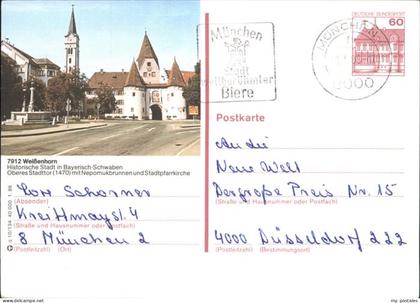 DEUTSCHE BUNDESPOST
60
München
Stadt
weltberühmter
Biere
MÜNCHEN
8000
Postkarte
7912 Weißenhorn
Historische Stadt in Bayerisch-Schwaben
Oberes Stadttor (1470) mit Nepomukbrunnen und Stadtpfarrkirche
Schorner
(Absender)
Kreittmayst. 4
(Straße und Hausnummer oder Postfach)
8 München 2
(Postleitzahl) (Ort)
An die
Neue Welt
Der große Preis Nr. 15
(Straße und Hausnummer oder Postfach)
4000 Düsseldorf 222
(Postleitzahl) (Bestimmungsort)